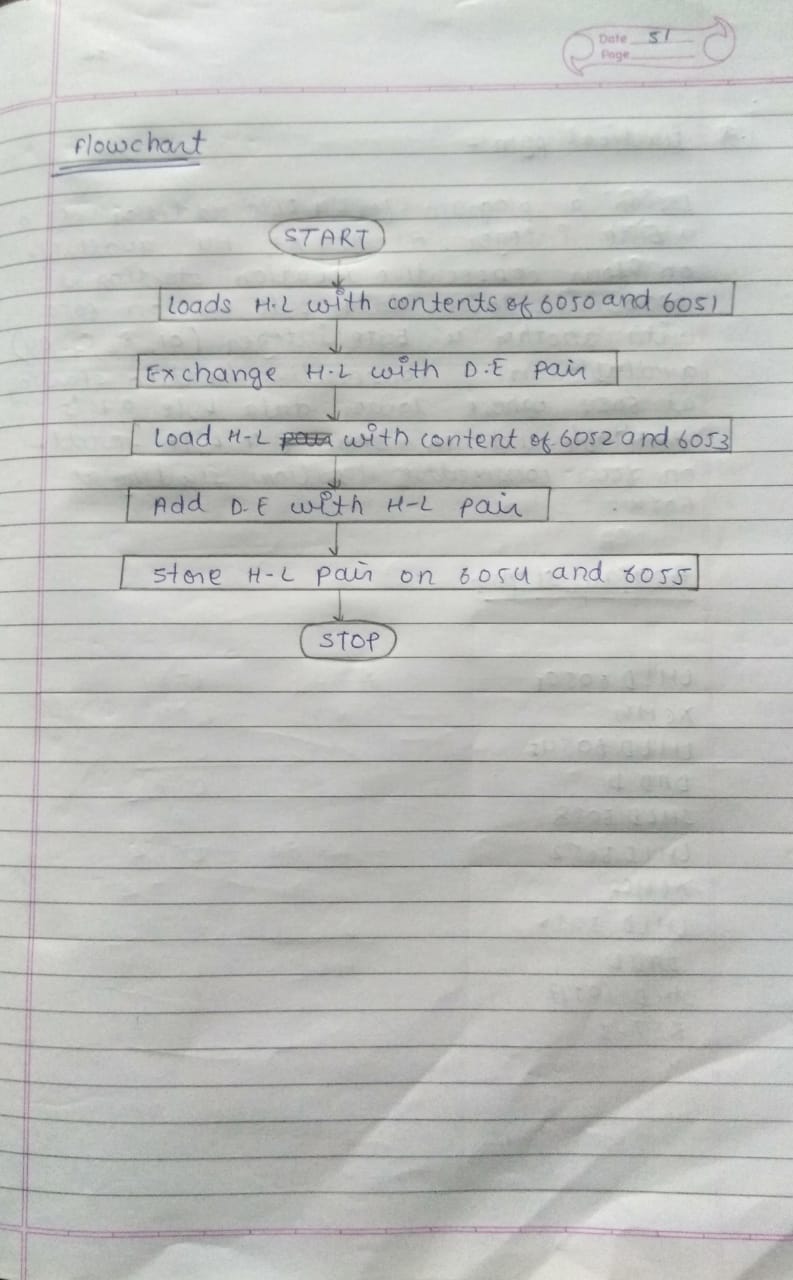 Date 51
Page
Flowchart
START
Loads H-L with contents of 6050 and 6051
Exchange H-L with D-E pair
Load H-L with content of 6052 and 6053
Add D-E with H-L pair
Store H-L pair on 6054 and 6055
STOP